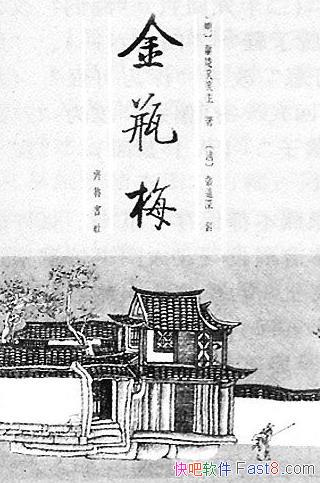 [明] 兰陵笑笑生 著
[清] 张道深 评
金瓶梅
齐鲁书社
快吧软件 Fast8.com